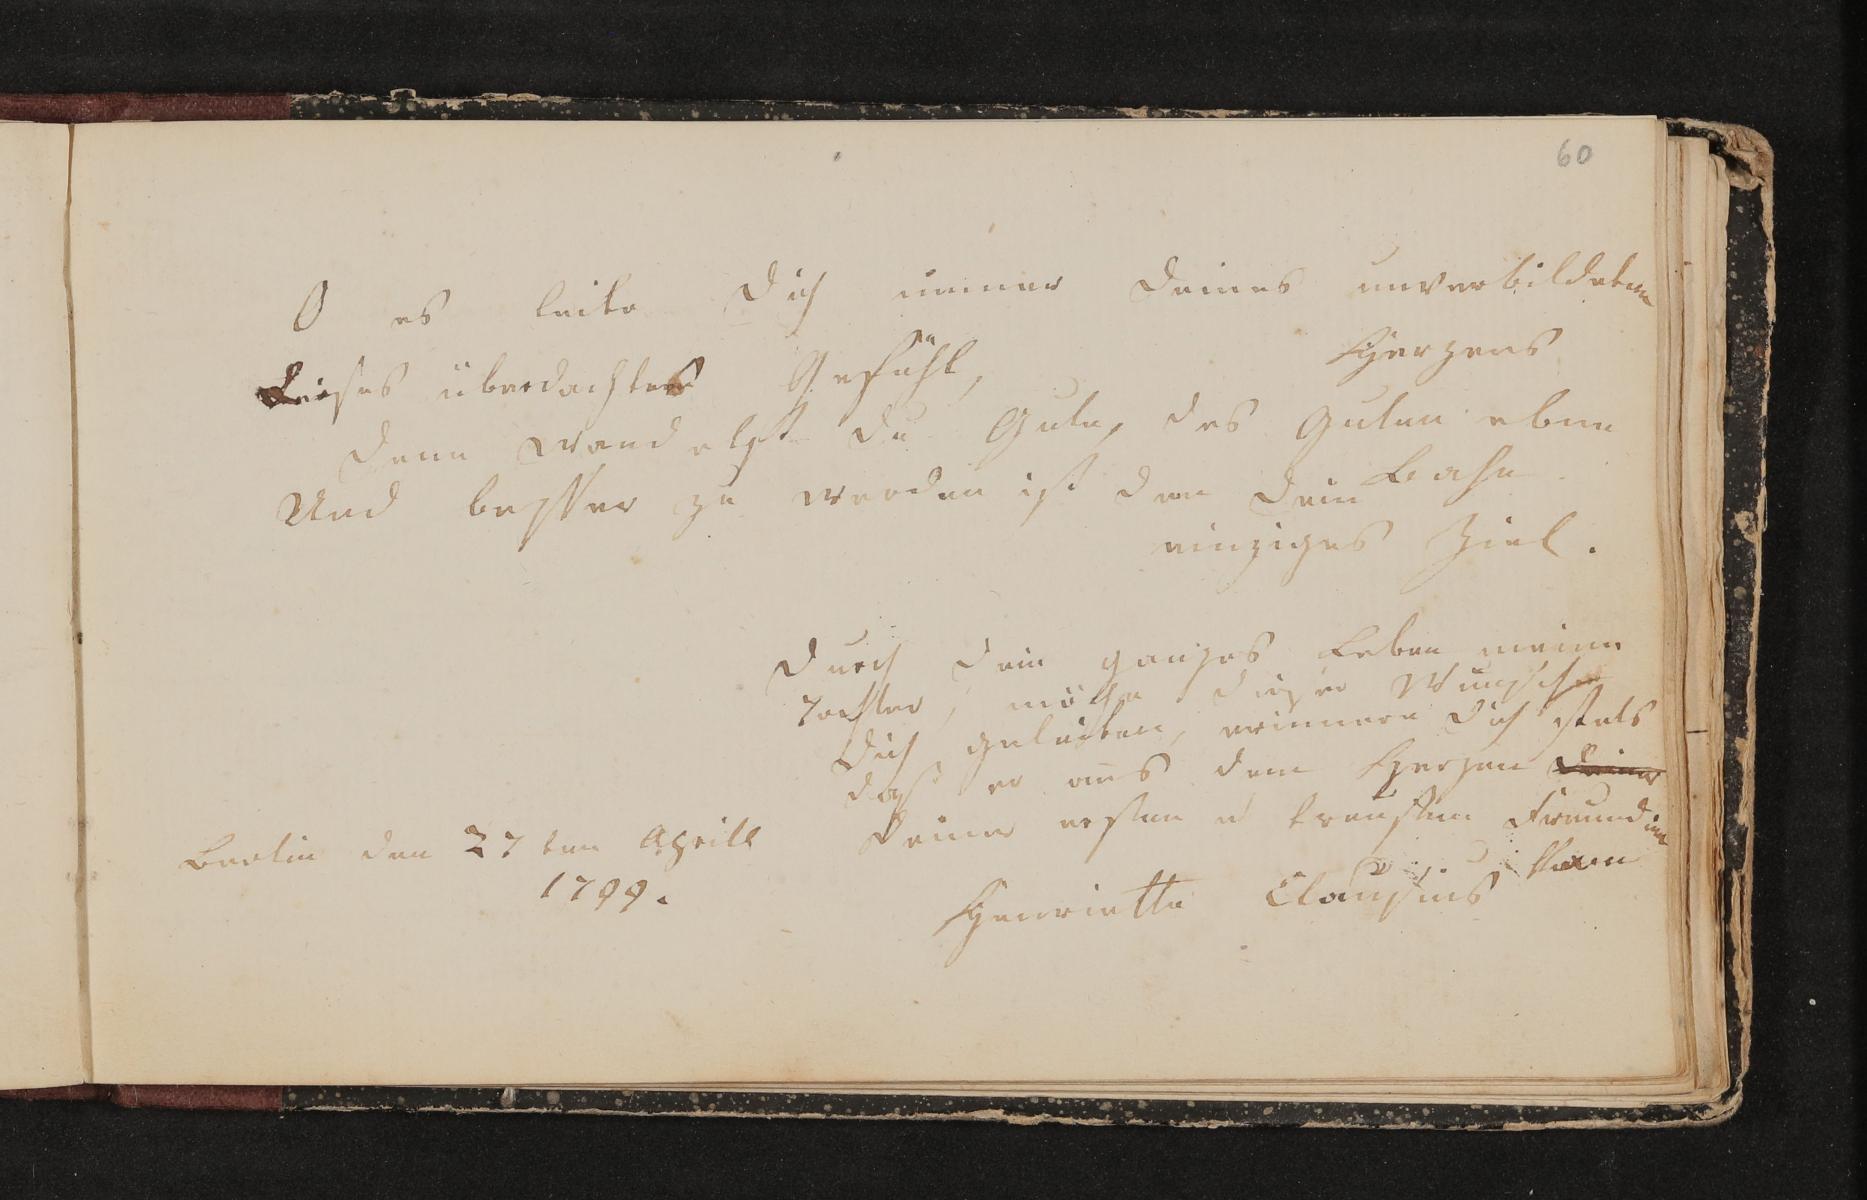 60
O es leite Dich immer Deines unverbildeten
Herzens
Leises überdachtes Gefühl,
Denn wandelst du Gute, des Guten ebene
Bahn
Und besser zu werden ist den Dein
einziges Ziel.
Durch Dein ganzes Leben meine
Tochter, möge dieser Wunsch
Dich geleiten, erinnere Dich stets
daß er aus dem Herzen Deiner
Deiner ersten u treusten Freundin
kam
Berlin den 27ten Aprill
1799.
Henriette Clausius